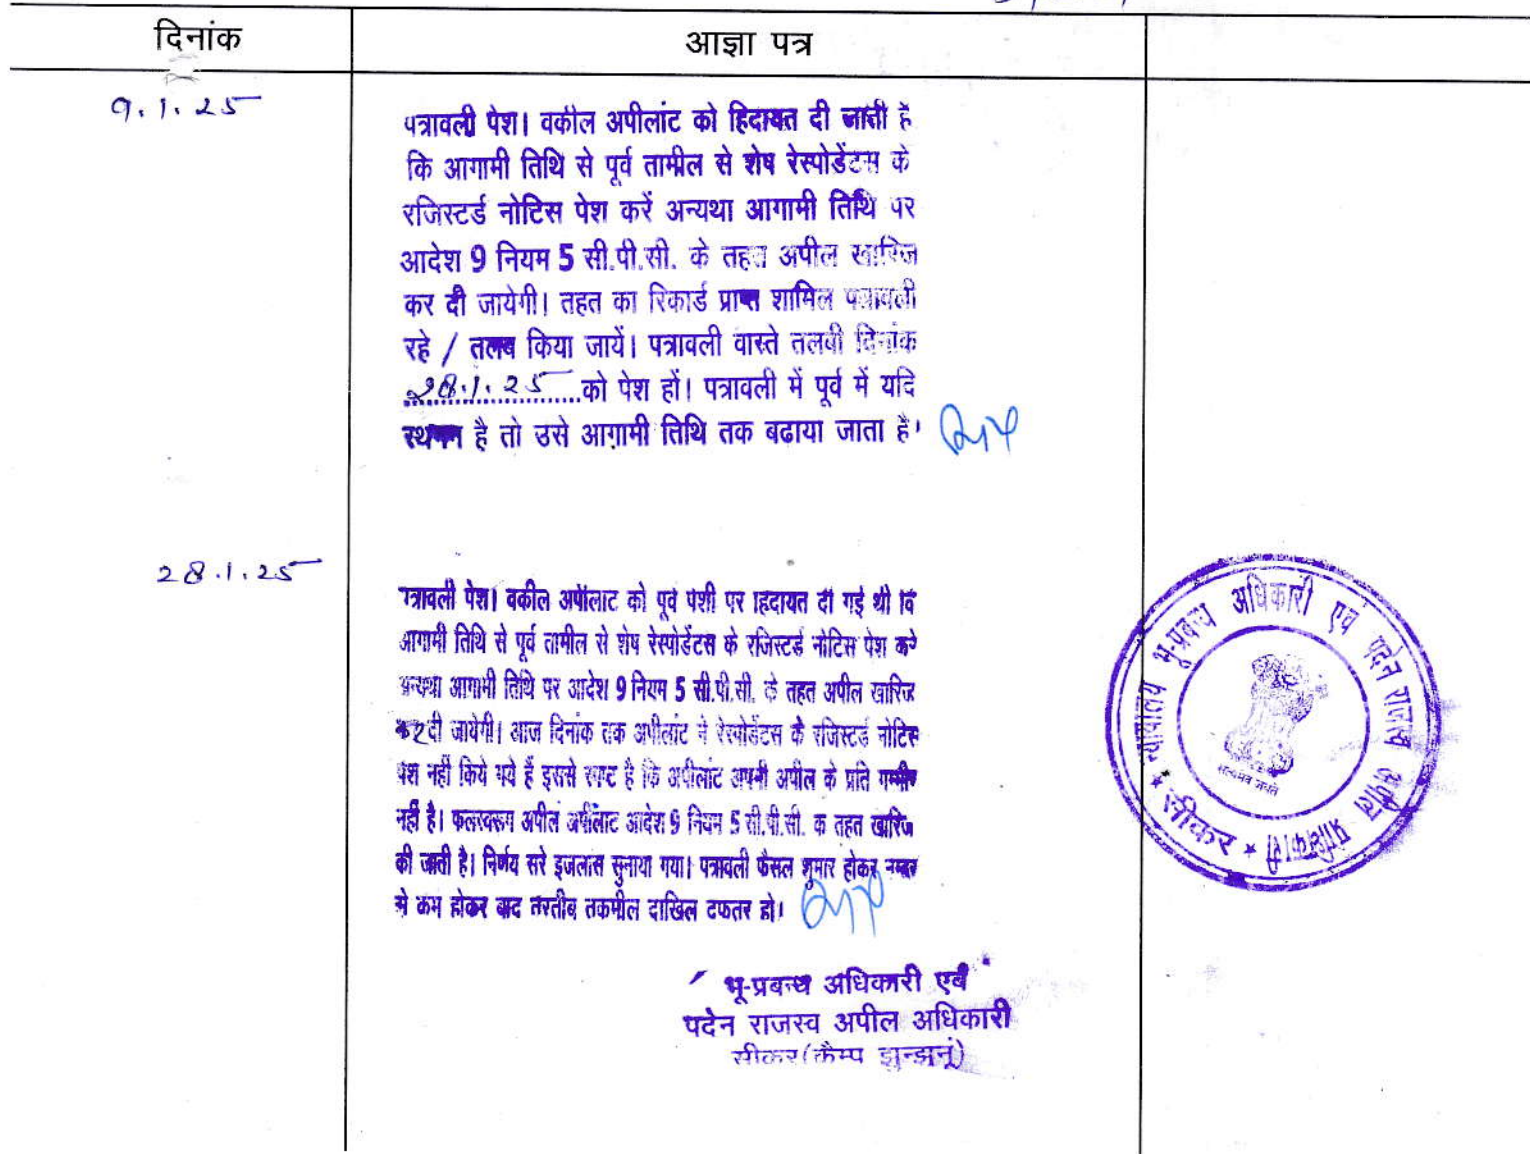 दिनांक
आज्ञा पत्र
9.1.25
पत्रावली पेश। वकील अपीलांट को हिदायत दी जाती है
कि आगामी तिथि से पूर्व तामील से शेष रेस्पोडेंटस के
रजिस्टर्ड नोटिस पेश करें अन्यथा आगामी तिथि पर
आदेश 9 नियम 5 सी.पी.सी. के तहत अपील खारिज
कर दी जायेगी। तहत का रिकार्ड प्राप्त शामिल पत्रावली
रहे / तलब किया जायें। पत्रावली वास्ते तलबी दिनांक
28.1.25 को पेश हों। पत्रावली में पूर्व में यदि
स्थगन है तो उसे आगामी तिथि तक बढाया जाता है।
28.1.25
पत्रावली पेश। वकील अपीलांट को पूर्व पेशी पर हिदायत दी गई थी कि
आगामी तिथि से पूर्व तामील से शेष रेस्पोडेंटस के रजिस्टर्ड नोटिस पेश करे
अन्यथा आगामी तिथि पर आदेश 9 नियम 5 सी.पी.सी. के तहत अपील खारिज
कर दी जायेगी। आज दिनांक तक अपीलांट ने रेस्पोडेंटस के रजिस्टर्ड नोटिस
पेश नहीं किये गये हैं इससे स्पष्ट है कि अपीलांट अपनी अपील के प्रति गम्भीर
नहीं है। फलस्वरूप अपील अपीलांट आदेश 9 नियम 5 सी.पी.सी. के तहत खारिज
की जाती है। निर्णय सरे इजलास सुनाया गया। पत्रावली फैसल शुमार होकर नम्बर
से कम होकर बाद तरतीब तकमील दाखिल दफतर हो।
भू-प्रबन्ध अधिकारी एवं
पदेन राजस्व अपील अधिकारी
सीकर (कैम्प झुन्झनूं)
न्यायालय भू-प्रबन्ध अधिकारी एवं पदेन राजस्व अपील प्राधिकारी
* सीकर *
सत्यमेव जयते